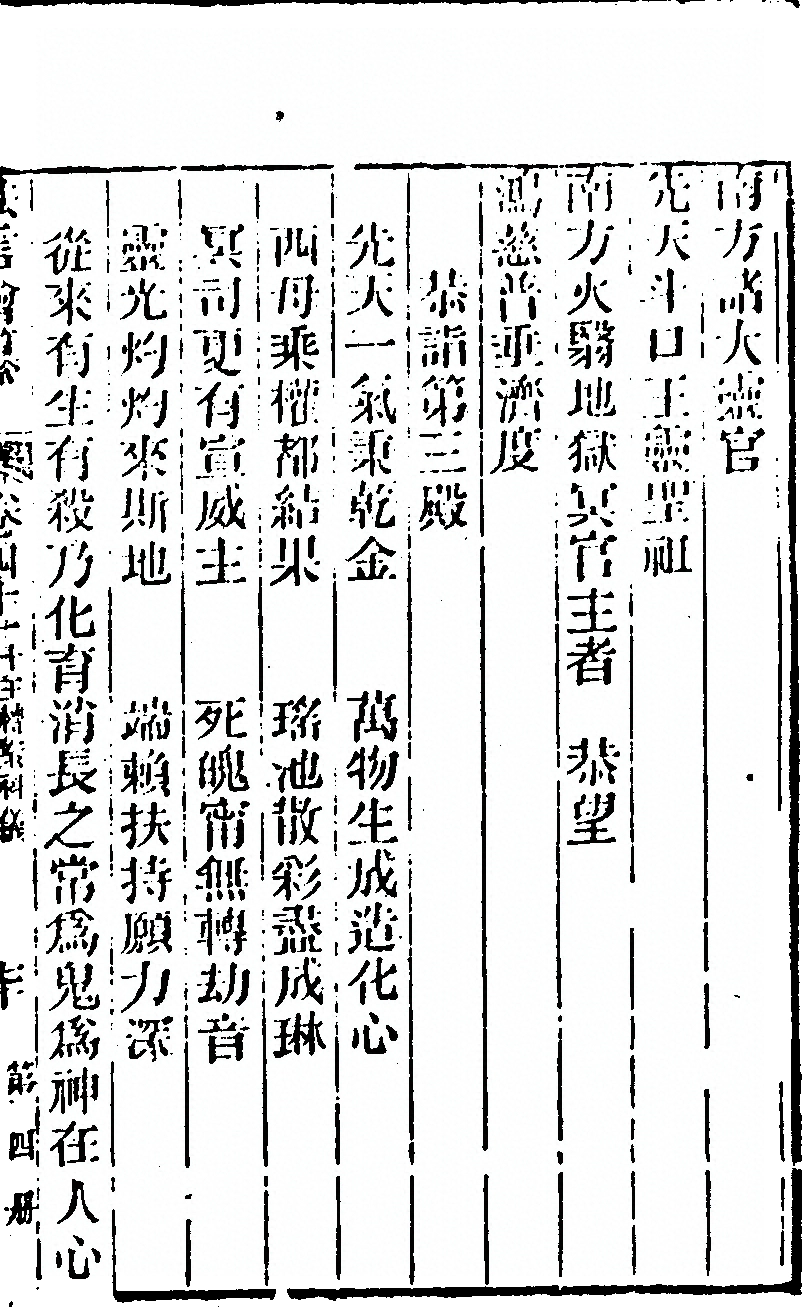 南方諸大靈官
先天斗口王靈聖祖
南方火翳地獄冥官主者　恭望
鴻慈普垂濟度
恭詣第三殿
先天一氣秉乾金　萬物生成造化心
西母乘權都結果　瑤池散彩盡成琳
冥司更有宣威主　死魄甯無轉劫音
靈光灼灼來斯地　端賴扶持願力深
從來有生有殺乃化育消長之常爲鬼爲神在人心
卷四十一十王轉案科儀
第四册